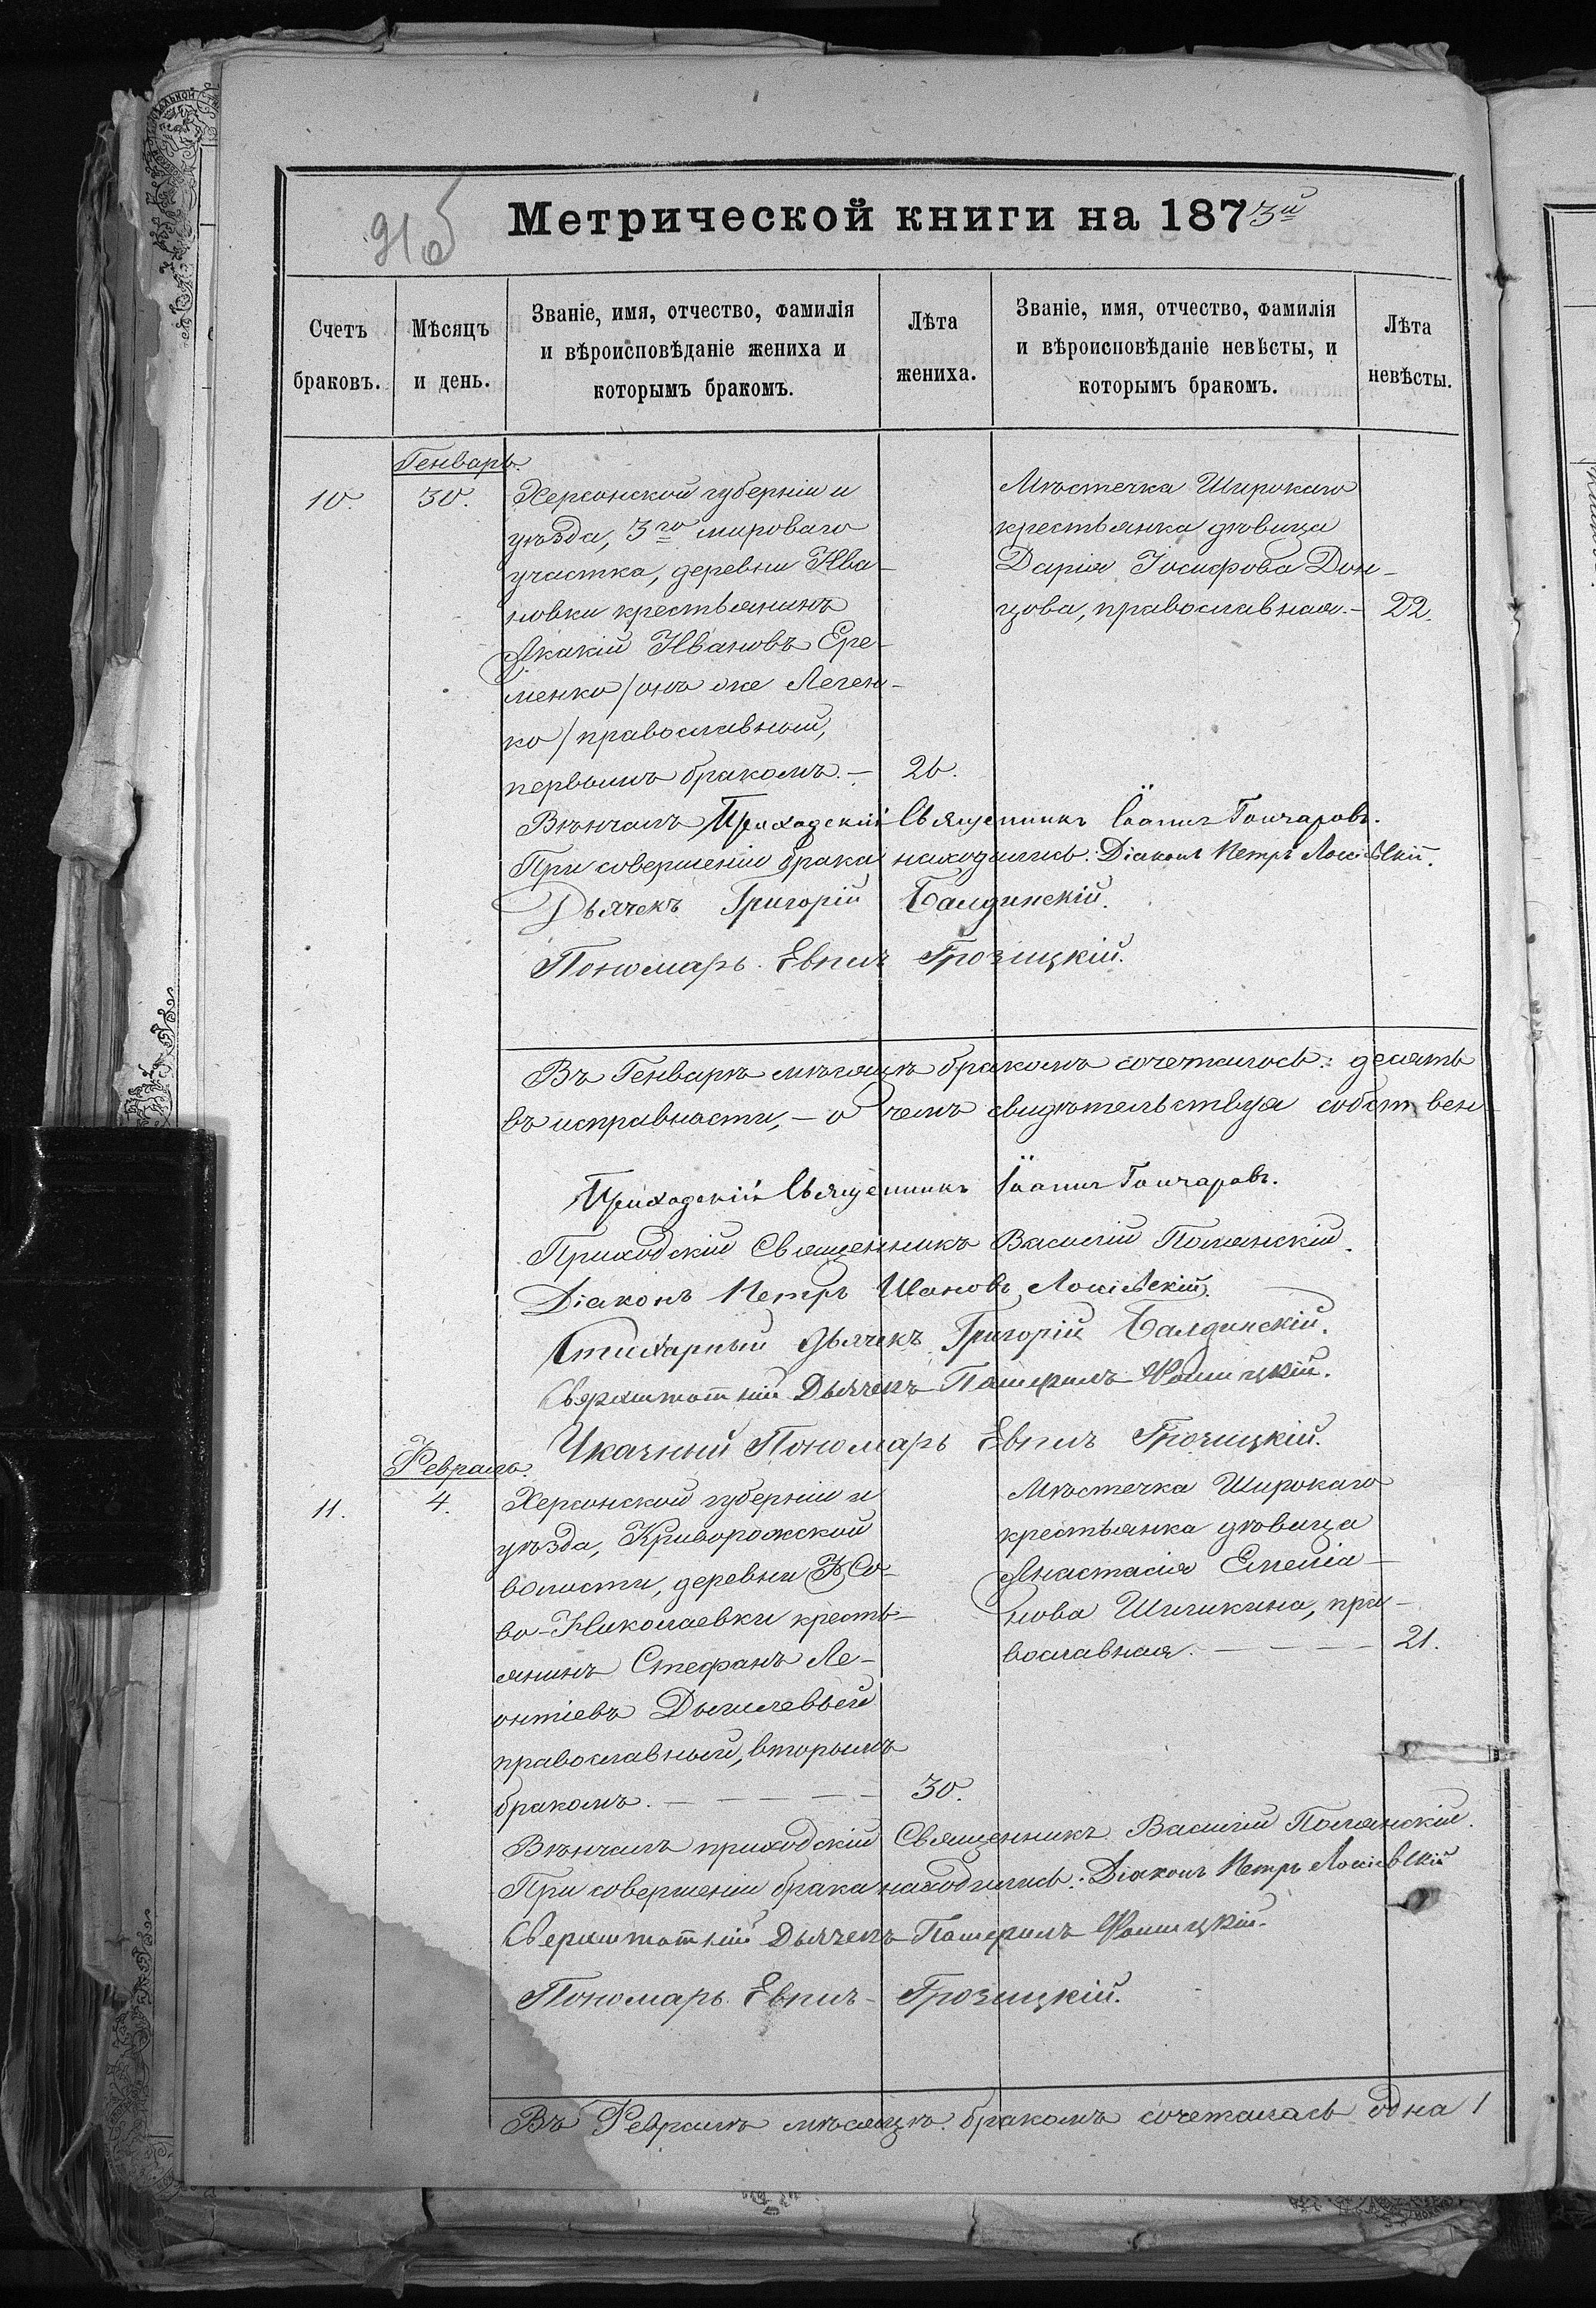 Метрической книги на 1873й
Счетъ браковъ.
Мѣсяцъ и день.
Званіе, имя, отчество, фамилія и вѣроисповѣданіе жениха и которымъ бракомъ.
Лѣта жениха.
Званіе, имя, отчество, фамилія и вѣроисповѣданіе невѣсты, и которымъ бракомъ.
Лѣта невѣсты.
Генварь.
10.
30.
Херсонской губерніи и
уѣзда, 3го мироваго
участка, деревни Ива-
новки крестьянинъ
Акакій Ивановъ Ере-
менко /онъ же Леген-
ко/ православный,
первымъ бракомъ. —
26.
Мѣстечка Широкаго
крестьянка дѣвица
Дарія Іосифова Дон-
цова, православная. —
22.
Вѣнчалъ Приходскій Священникъ Іоаннъ Гончаровъ.
При совершеніи брака находились: Діаконъ Петръ
Дьячекъ Григорій Балдинскій.
Пономарь Евпилъ Грозицкій.
Въ Генварѣ мѣсяцѣ бракомъ сочеталось: десять
въ исправности, — о чемъ свидѣтельствуя собствен-
Приходскій Священникъ Іоаннъ Гончаровъ.
Приходскій Священникъ Василій Полянскій.
Діаконъ Петръ Ивановъ
Стихарный Дьячекъ Григорій Балдинскій.
Сверхштатній Дьячекъ
Указный Пономарь Евпилъ Грозицкій.
Февраль.
11.
4.
Херсонской губерніи и
уѣзда, Криворожской
волости, деревни Со-
во-Николаевки кресть-
янинъ Стефанъ Ле-
онтіевъ Дышлевый
православный, вторымъ
бракомъ. —
30.
Мѣстечка Широкаго
крестьянка дѣвица
Анастасія Емелія-
нова Шишкина, пра-
вославная. —
21.
Вѣнчалъ приходскій Священникъ Василій Полянскій.
При совершеніи брака находились: Діаконъ Петръ
Сверхштатній Дьячекъ
Пономарь Евпилъ Грозицкій.
Въ Февралѣ мѣсяцѣ бракомъ сочеталась одна 1